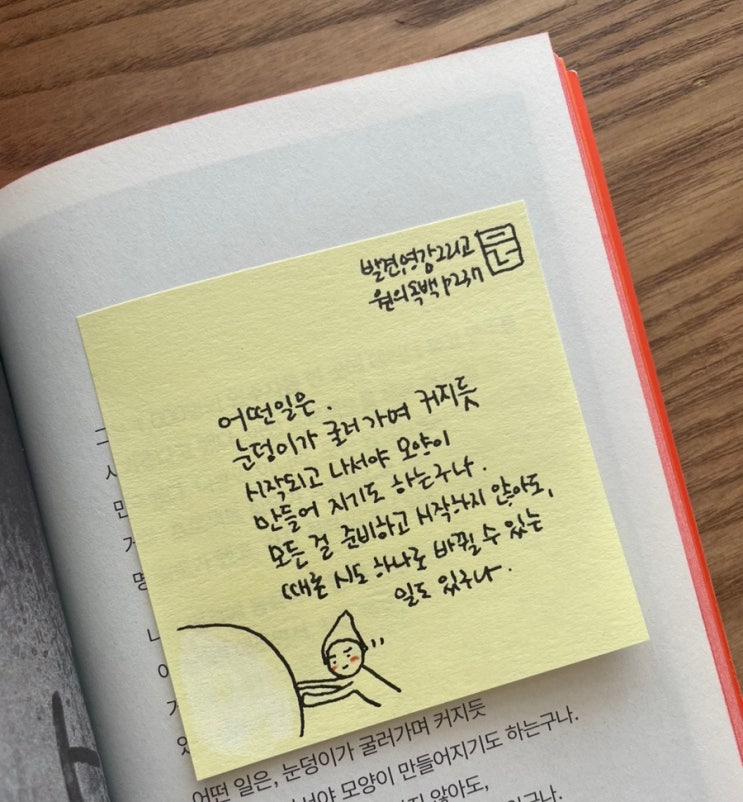 발견, 영감 그리고
원의독백 p237
어떤일은.
눈덩이가 굴러가며 커지듯
시작되고 나서야 모양이
만들어 지기도 하는구나.
모든 걸 준비하고 시작하지 않아도,
때론 시도 하나로 바뀔 수 있는
일도 있구나.
그
사
만
거
명
나
있
어떤 일은, 눈덩이가 굴러가며 커지듯
모양이 만들어지기도 하는구나.
않아도,